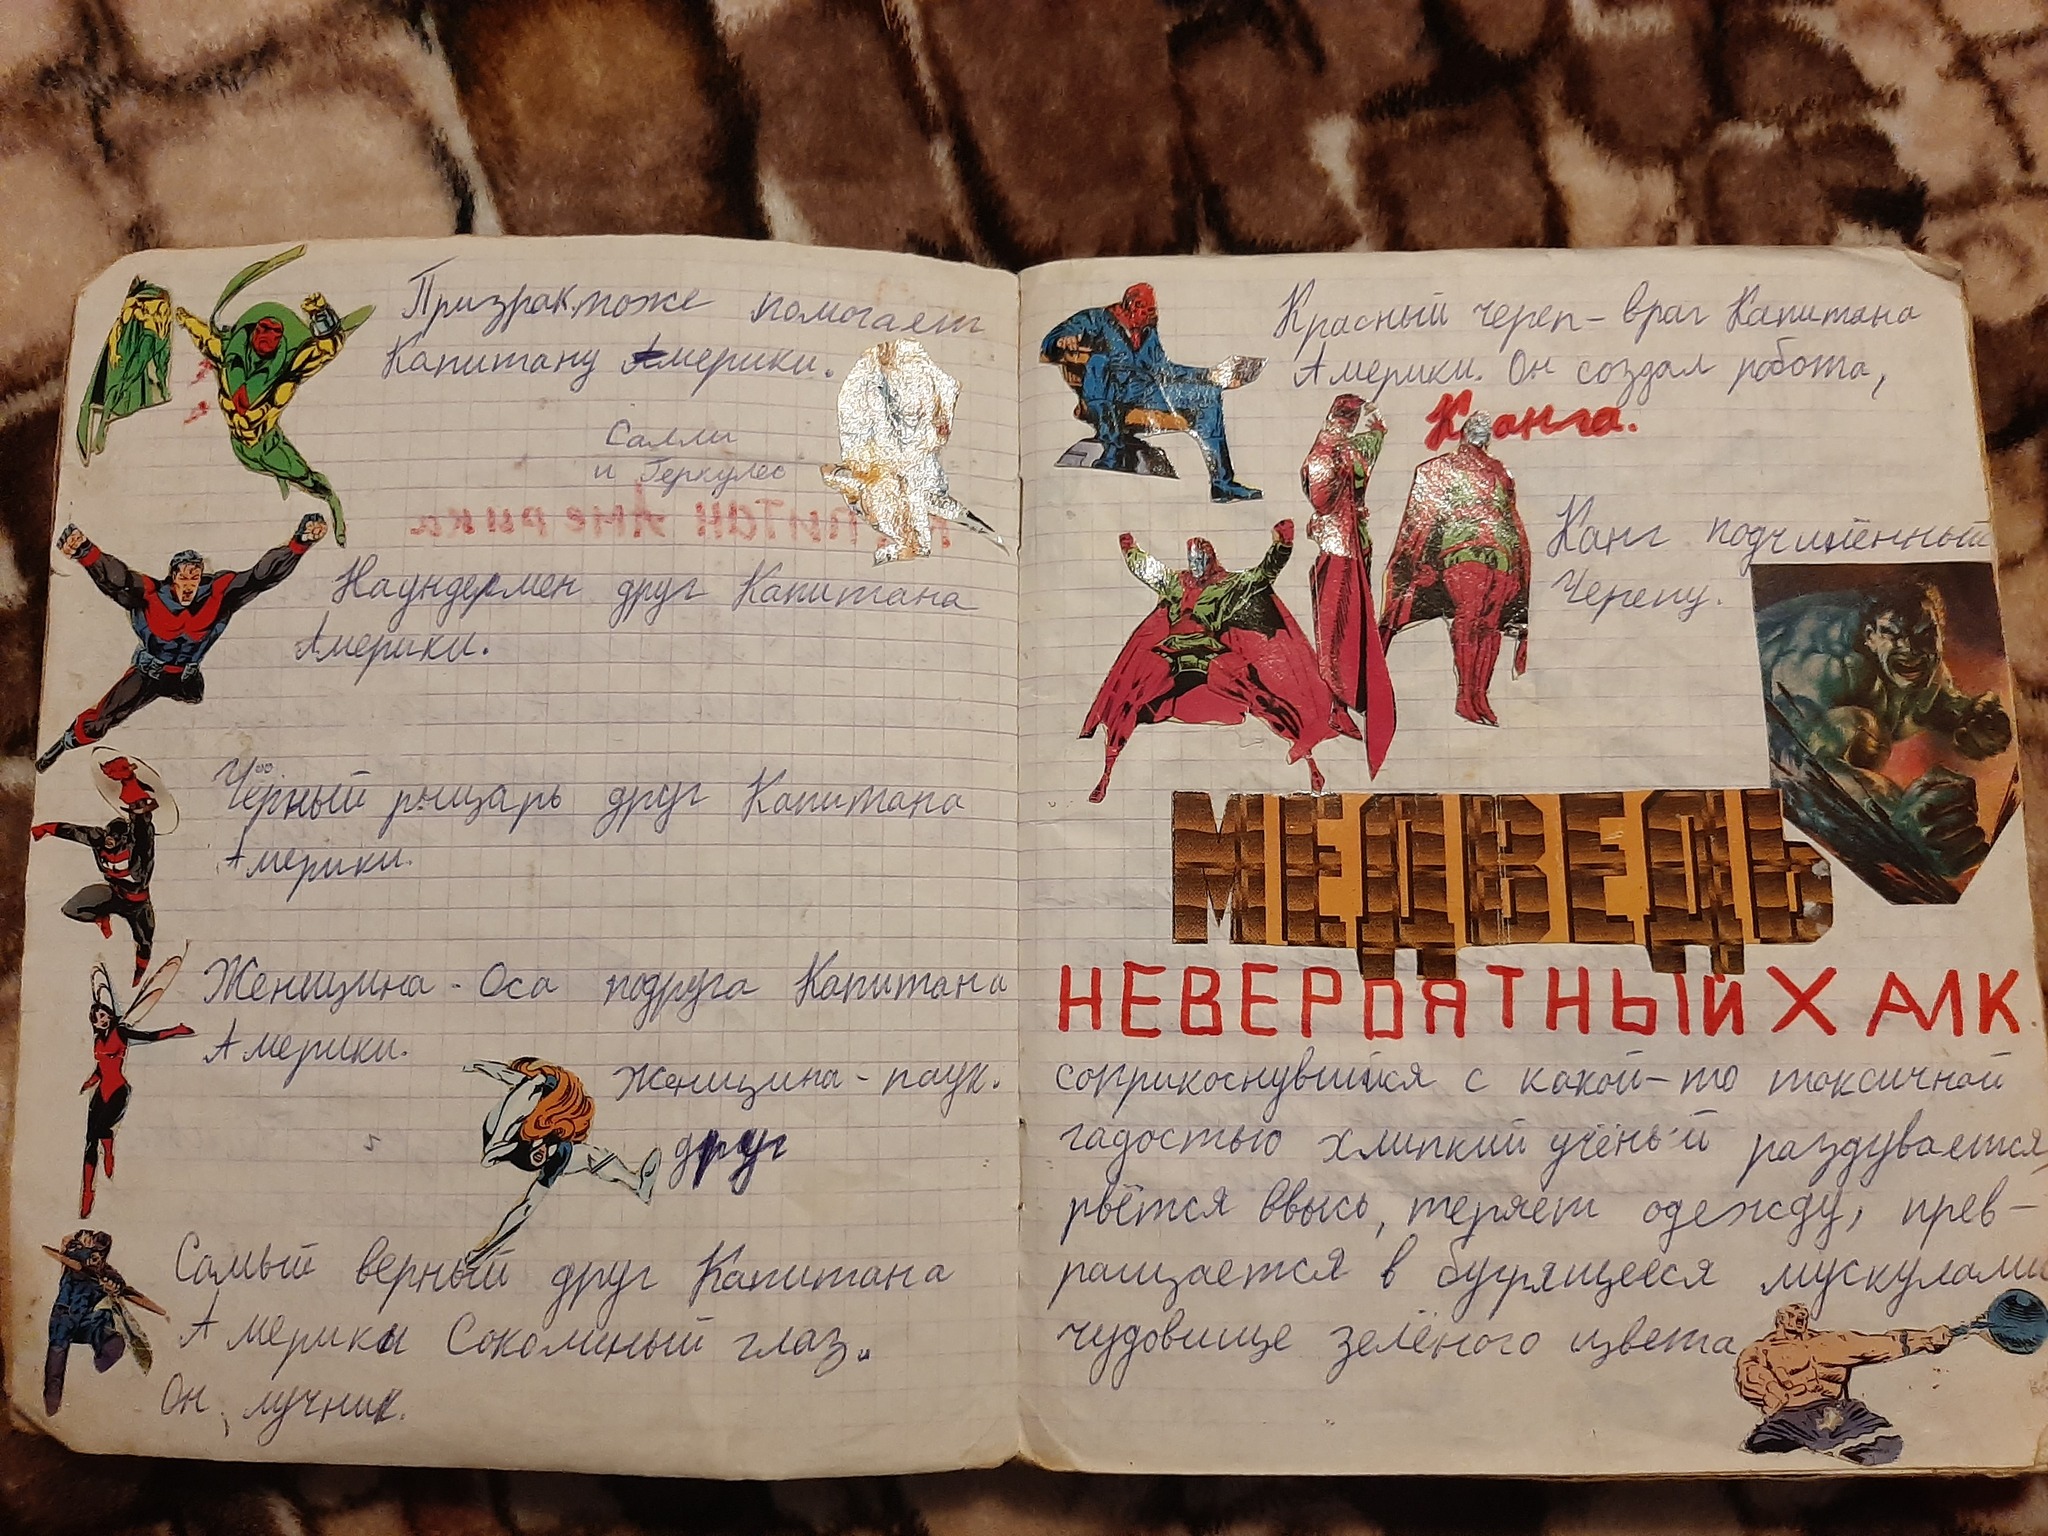 Призрак тоже помогает
Капитану Америки.
Салли
и Геркулес
Капитан Америка
Наундермен друг Капитана
Америки.
Чёрный рыцарь друг Капитана
Америки.
Женщина - Оса подруга Капитана
Америки.
Женщина - паук.
друг
Самый верный друг Капитана
Америки Соколиный глаз.
Он лучник.
Красный череп - враг Капитана
Америки. Он создал робота,
Канга.
Канг подчинённый
Черепу.
МЕДВЕДЬ
НЕВЕРОЯТНЫЙ ХАЛК.
соприкоснувшийся с какой-то токсичной
гадостью хлипкий учёный раздувается,
рвётся ввысь, теряет одежду, прев-
ращается в бугрящееся мускулами
чудовище зелёного цвета